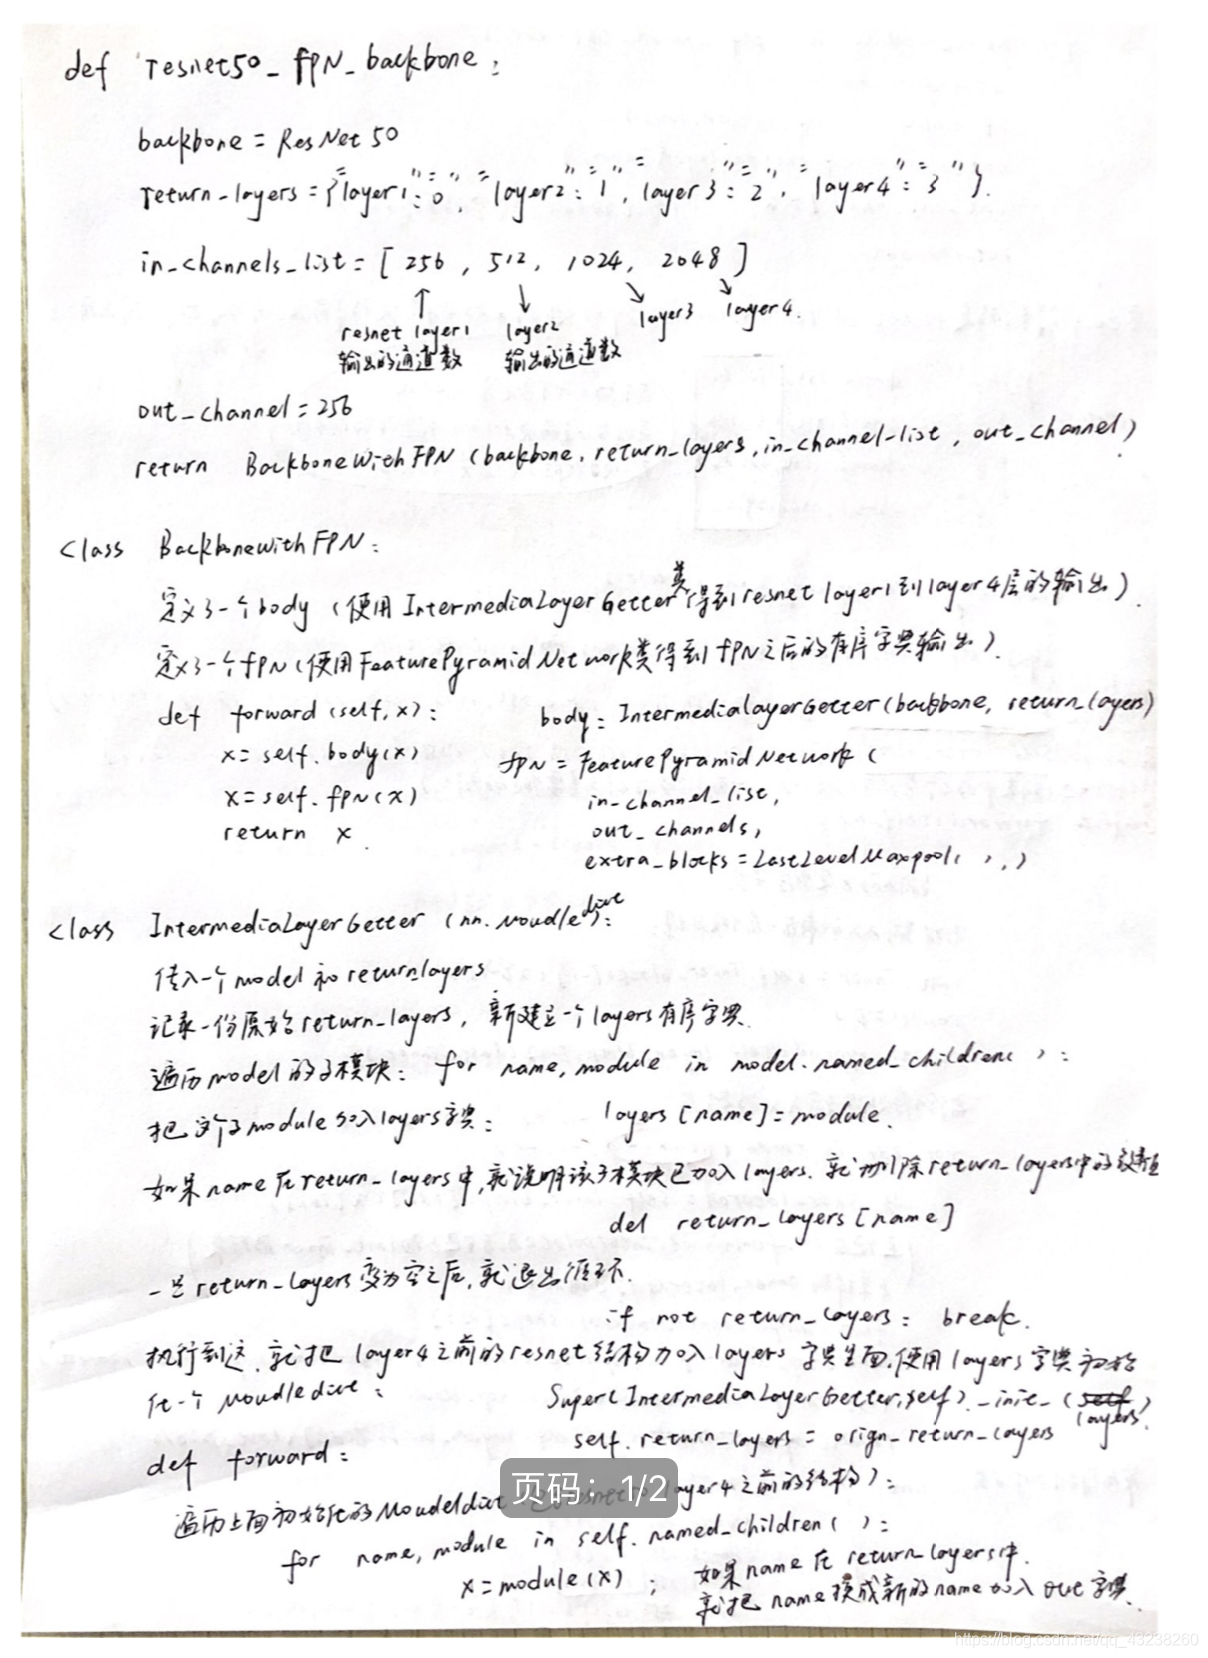 def resnet50_fpn_backbone:
backbone = ResNet50
return_layers = {"layer1":"0", "layer2":"1", layer3":"2", "layer4":"3"}.
in_channels_list = [256, 512, 1024, 2048]
↑ ↓ ↘ layer3 ↘ layer4.
resnet layer1 layer2
输出的通道数 输出的通道数
out_channel = 256
return BackboneWithFPN (backbone, return_layers, in_channel-list, out_channel)
class BackbonewithFPN:
定义了一个body (使用 IntermediaLayerGetter类得到resnet layer1到layer4层的输出).
定义了一个fPN (使用FeaturePyramidNetwork类得到fPN之后的有序字典输出).
def forward (self, x): body = IntermedialayerGetter(backbone, return_layers)
x = self.body(x) fpN = FeaturePyramidNetwork (
x = self.fPN(x) in_channel_list,
return x. out_channels,
extra_blocks = LastLevelMaxpool( ), )
class IntermediaLayerGetter (nn.Moudledict):
传入一个model和returnlayers
记录一份原始return_layers, 新建立一个layers有序字典.
遍历model的子模块: for name, module in model.named_children( ):
把这个子module加入layers字典: layers[name]=module.
如果name在return_layers中,就说明该子模块已加入layers.就删除return_layers中的该键值
del return_layers[name]
一旦return_layers变为空之后,就退出循环.
if not return_layers: break.
执行到这,就把layer4之前的resnet结构加入layers字典里面,使用layers字典初始
化一个Moudledict: Super(IntermediaLayerGetter, self)._init_(self layers)
self.return_layers = orign_return_layers
def forward:
页码：1/2
遍历上面初始化的Moudeldict layer4之前的结构):
for name, module in self.named_children( ):
x = module(x) ; 如果name在returnlayers中.
就把name换成新的name加入out字典.
https://blog.csdn.net/qq_43238260